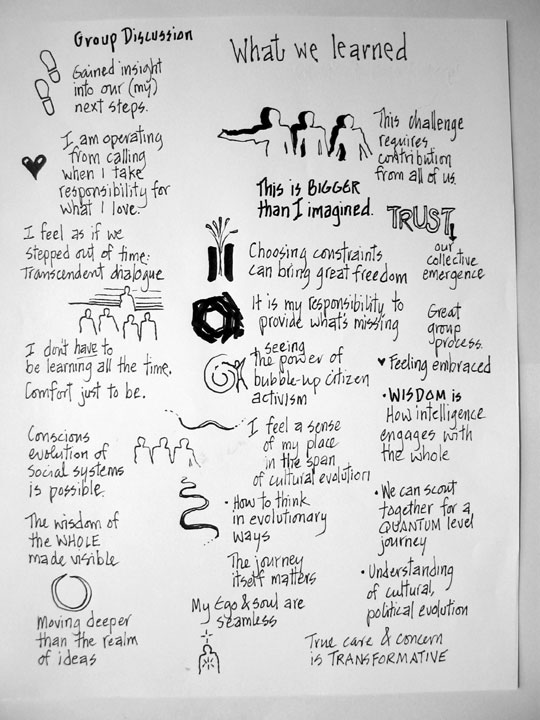 Group Discussion
What we learned
Gained insight
into our (my)
next steps.
I am operating
from calling
when I take
responsibility for
what I love.
I feel as if we
stepped out of time:
Transcendent dialogue
I don't have to
be learning all the time.
Comfort just to be.
Conscious
evolution of
social systems
is possible.
The wisdom of
the WHOLE
made visible
Moving deeper
than the realm
of ideas
This is BIGGER
than I imagined.
Choosing constraints
can bring great freedom
It is my responsibility to
provide what's missing
seeing
the power of
bubble-up citizen
activism
I feel a sense
of my place
in the span
of cultural evolution
• How to think
in evolutionary
ways
The journey
itself matters
My Ego & soul are
seamless
This challenge
requires
contribution
from all of us.
TRUST
our
collective
emergence
Great
group
process.
♥ Feeling embraced
• WISDOM is
How intelligence
engages with
the whole
• We can scout
together for a
QUANTUM level
journey
• Understanding
of cultural,
political evolution
True care & concern
is TRANSFORMATIVE